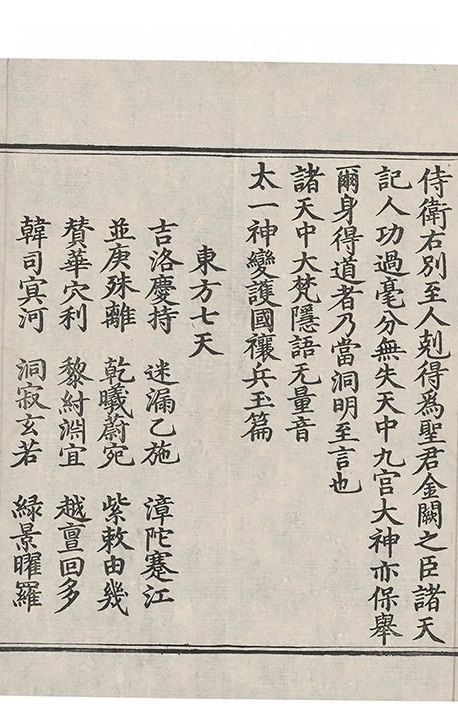 侍衛右別至人剋得為聖君金闕之臣諸天
記人功過毫分無失天中九宮大神亦保舉
爾身得道者乃當洞明至言也
諸天中大梵隱語无量音
太一神變護國禳兵玉篇
東方七天
吉洛慶持 迷漏乙施 漳陀蹇江
並庚殊離 乾曦蔚宛 紫敕由幾
賛華穴利 黎紂淵宜 越亶回多
韓司冥河 洞寂玄若 緑景曜羅